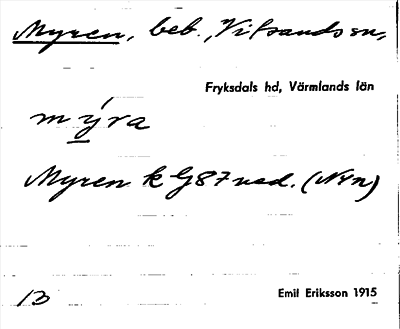 Myren, beb. Vitsands sn,
Fryksdals hd, Värmlands län
mýra
Myren k G87 ned. (N4n)
13
Emil Eriksson 1915